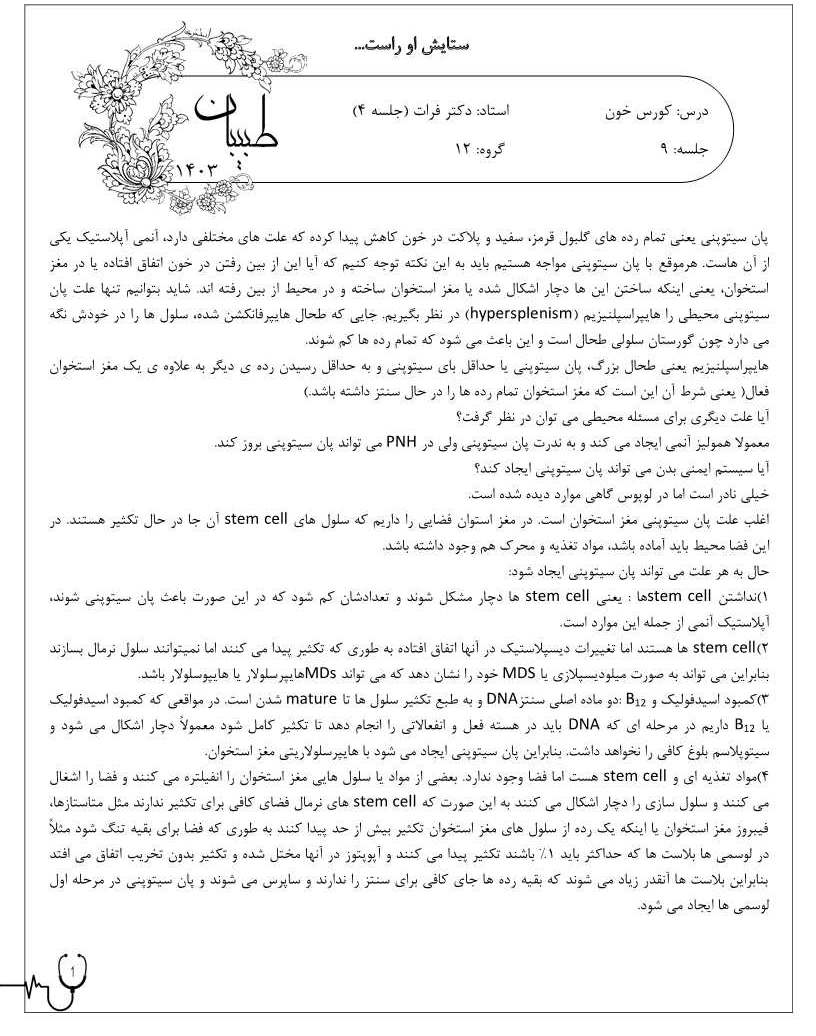 ستایش او راست...
درس: کورس خون
استاد: دکتر فرات (جلسه ۴)
جلسه: ۹
گروه: ۱۲
طبیبان
۱۴۰۳
پان سیتوپنی یعنی تمام رده های گلبول قرمز، سفید و پلاکت در خون کاهش پیدا کرده که علت های مختلفی دارد، آنمی آپلاستیک یکی
از آن هاست. هرموقع با پان سیتوپنی مواجه هستیم باید به این نکته توجه کنیم که آیا این از بین رفتن در خون اتفاق افتاده یا در مغز
استخوان، یعنی اینکه ساختن این ها دچار اشکال شده یا مغز استخوان ساخته و در محیط از بین رفته اند. شاید بتوانیم تنها علت پان
سیتوپنی محیطی را هایپراسپلنیزیم (hypersplenism) در نظر بگیریم. جایی که طحال هایپرفانکشن شده، سلول ها را در خودش نگه
می دارد چون گورستان سلولی طحال است و این باعث می شود که تمام رده ها کم شوند.
هایپراسپلنیزیم یعنی طحال بزرگ، پان سیتوپنی یا حداقل بای سیتوپنی و به حداقل رسیدن رده ی دیگر به علاوه ی یک مغز استخوان
فعال( یعنی شرط آن این است که مغز استخوان تمام رده ها را در حال سنتز داشته باشد.)
آیا علت دیگری برای مسئله محیطی می توان در نظر گرفت؟
معمولا همولیز آنمی ایجاد می کند و به ندرت پان سیتوپنی ولی در PNH می تواند پان سیتوپنی بروز کند.
آیا سیستم ایمنی بدن می تواند پان سیتوپنی ایجاد کند؟
خیلی نادر است اما در لوپوس گاهی موارد دیده شده است.
اغلب علت پان سیتوپنی مغز استخوان است. در مغز استوان فضایی را داریم که سلول های stem cell آن جا در حال تکثیر هستند. در
این فضا محیط باید آماده باشد، مواد تغذیه و محرک هم وجود داشته باشد.
حال به هر علت می تواند پان سیتوپنی ایجاد شود:
۱)نداشتن stem cellها : یعنی stem cell ها دچار مشکل شوند و تعدادشان کم شود که در این صورت باعث پان سیتوپنی شوند،
آپلاستیک آنمی از جمله این موارد است.
۲)stem cell ها هستند اما تغییرات دیسپلاستیک در آنها اتفاق افتاده به طوری که تکثیر پیدا می کنند اما نمیتوانند سلول نرمال بسازند
بنابراین می تواند به صورت میلودیسپلازی یا MDS خود را نشان دهد که می تواند MDsهایپرسلولار یا هایپوسلولار باشد.
۳)کمبود اسیدفولیک و B₁₂ :دو ماده اصلی سنتزDNA و به طبع تکثیر سلول ها تا mature شدن است. در مواقعی که کمبود اسیدفولیک
یا B₁₂ داریم در مرحله ای که DNA باید در هسته فعل و انفعالاتی را انجام دهد تا تکثیر کامل شود معمولاً دچار اشکال می شود و
سیتوپلاسم بلوغ کافی را نخواهد داشت. بنابراین پان سیتوپنی ایجاد می شود با هایپرسلولاریتی مغز استخوان.
۴)مواد تغذیه ای و stem cell هست اما فضا وجود ندارد. بعضی از مواد یا سلول هایی مغز استخوان را انفیلتره می کنند و فضا را اشغال
می کنند و سلول سازی را دچار اشکال می کنند به این صورت که stem cell های نرمال فضای کافی برای تکثیر ندارند مثل متاستازها،
فیبروز مغز استخوان یا اینکه یک رده از سلول های مغز استخوان تکثیر بیش از حد پیدا کنند به طوری که فضا برای بقیه تنگ شود مثلاً
در لوسمی ها بلاست ها که حداکثر باید ۱٪ باشند تکثیر پیدا می کنند و آپوپتوز در آنها مختل شده و تکثیر بدون تخریب اتفاق می افتد
بنابراین بلاست ها آنقدر زیاد می شوند که بقیه رده ها جای کافی برای سنتز را ندارند و ساپرس می شوند و پان سیتوپنی در مرحله اول
لوسمی ها ایجاد می شود.
1